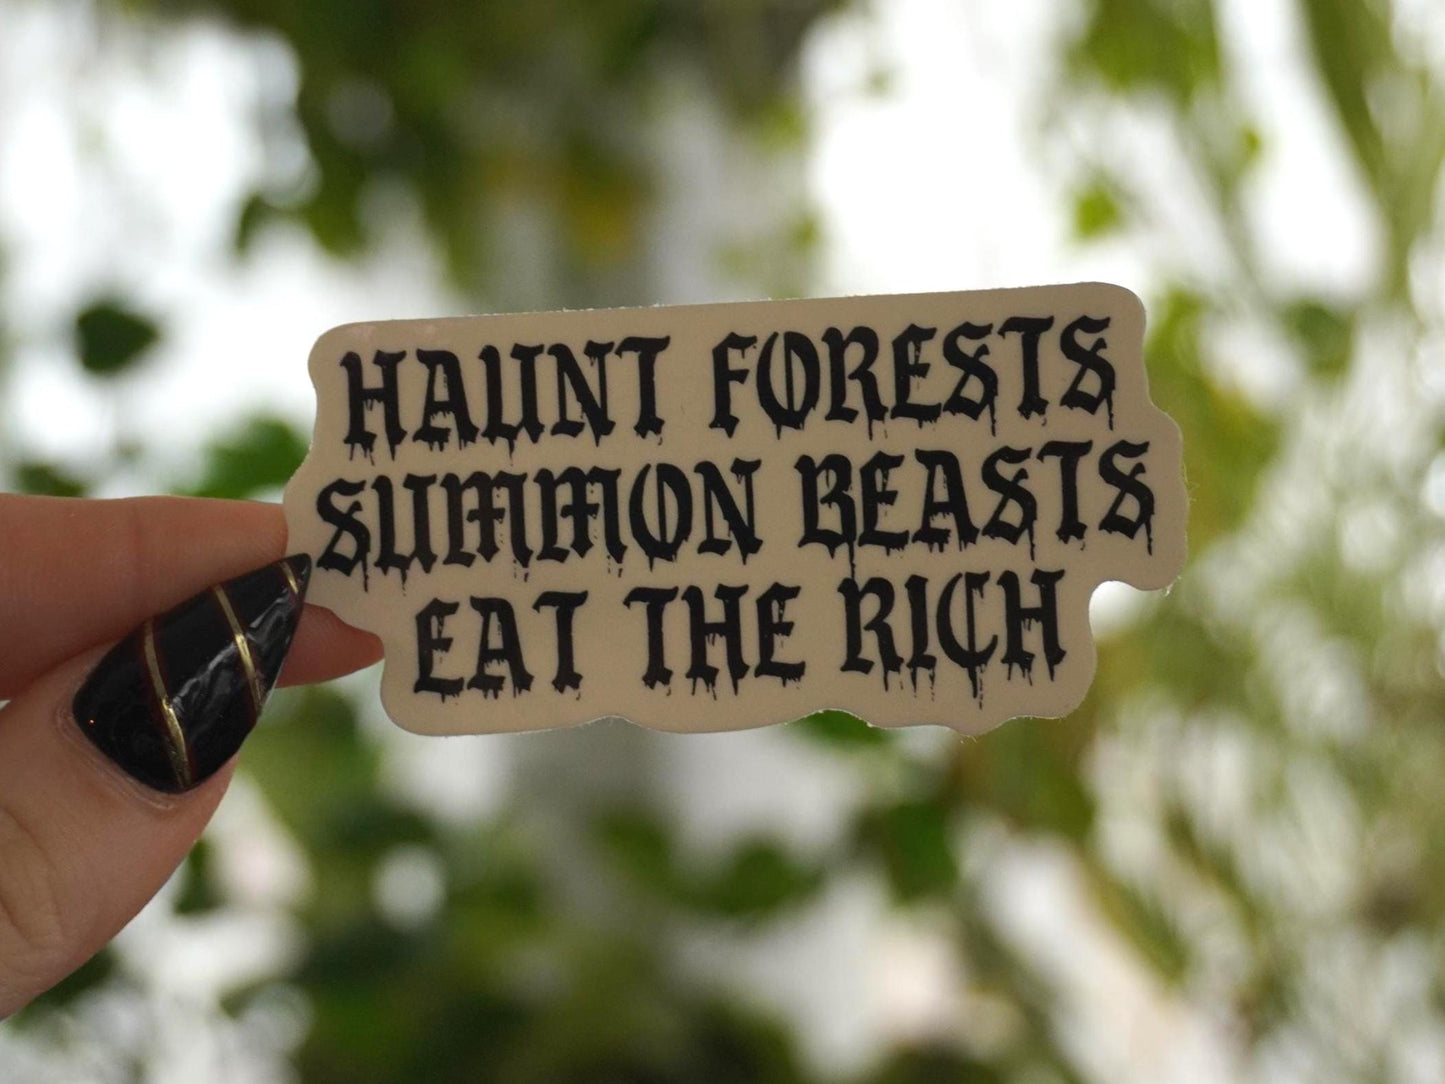 HAUNT FORESTS
SUMMON BEASTS
EAT THE RICH